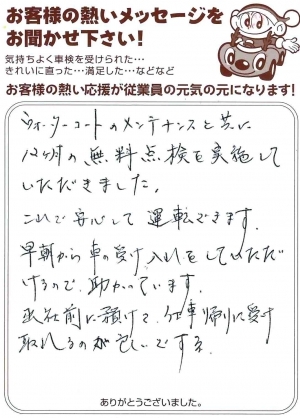 お客様の熱いメッセージを
お聞かせ下さい!
気持ちよく車検を受けられた…
きれいに直った…満足した…などなど
お客様の熱い応援が従業員の元気の元になります!
ウォーターコートのメンテナンスと共に
12ヶ月の無料点検を実施して
いただきました。
これで安心して運転できます。
早朝から車の受け入れをしていただ
けるので、助かっています。
出社前に預けて、仕事帰りに受け
取れるのが
ですネ
ありがとうございました。